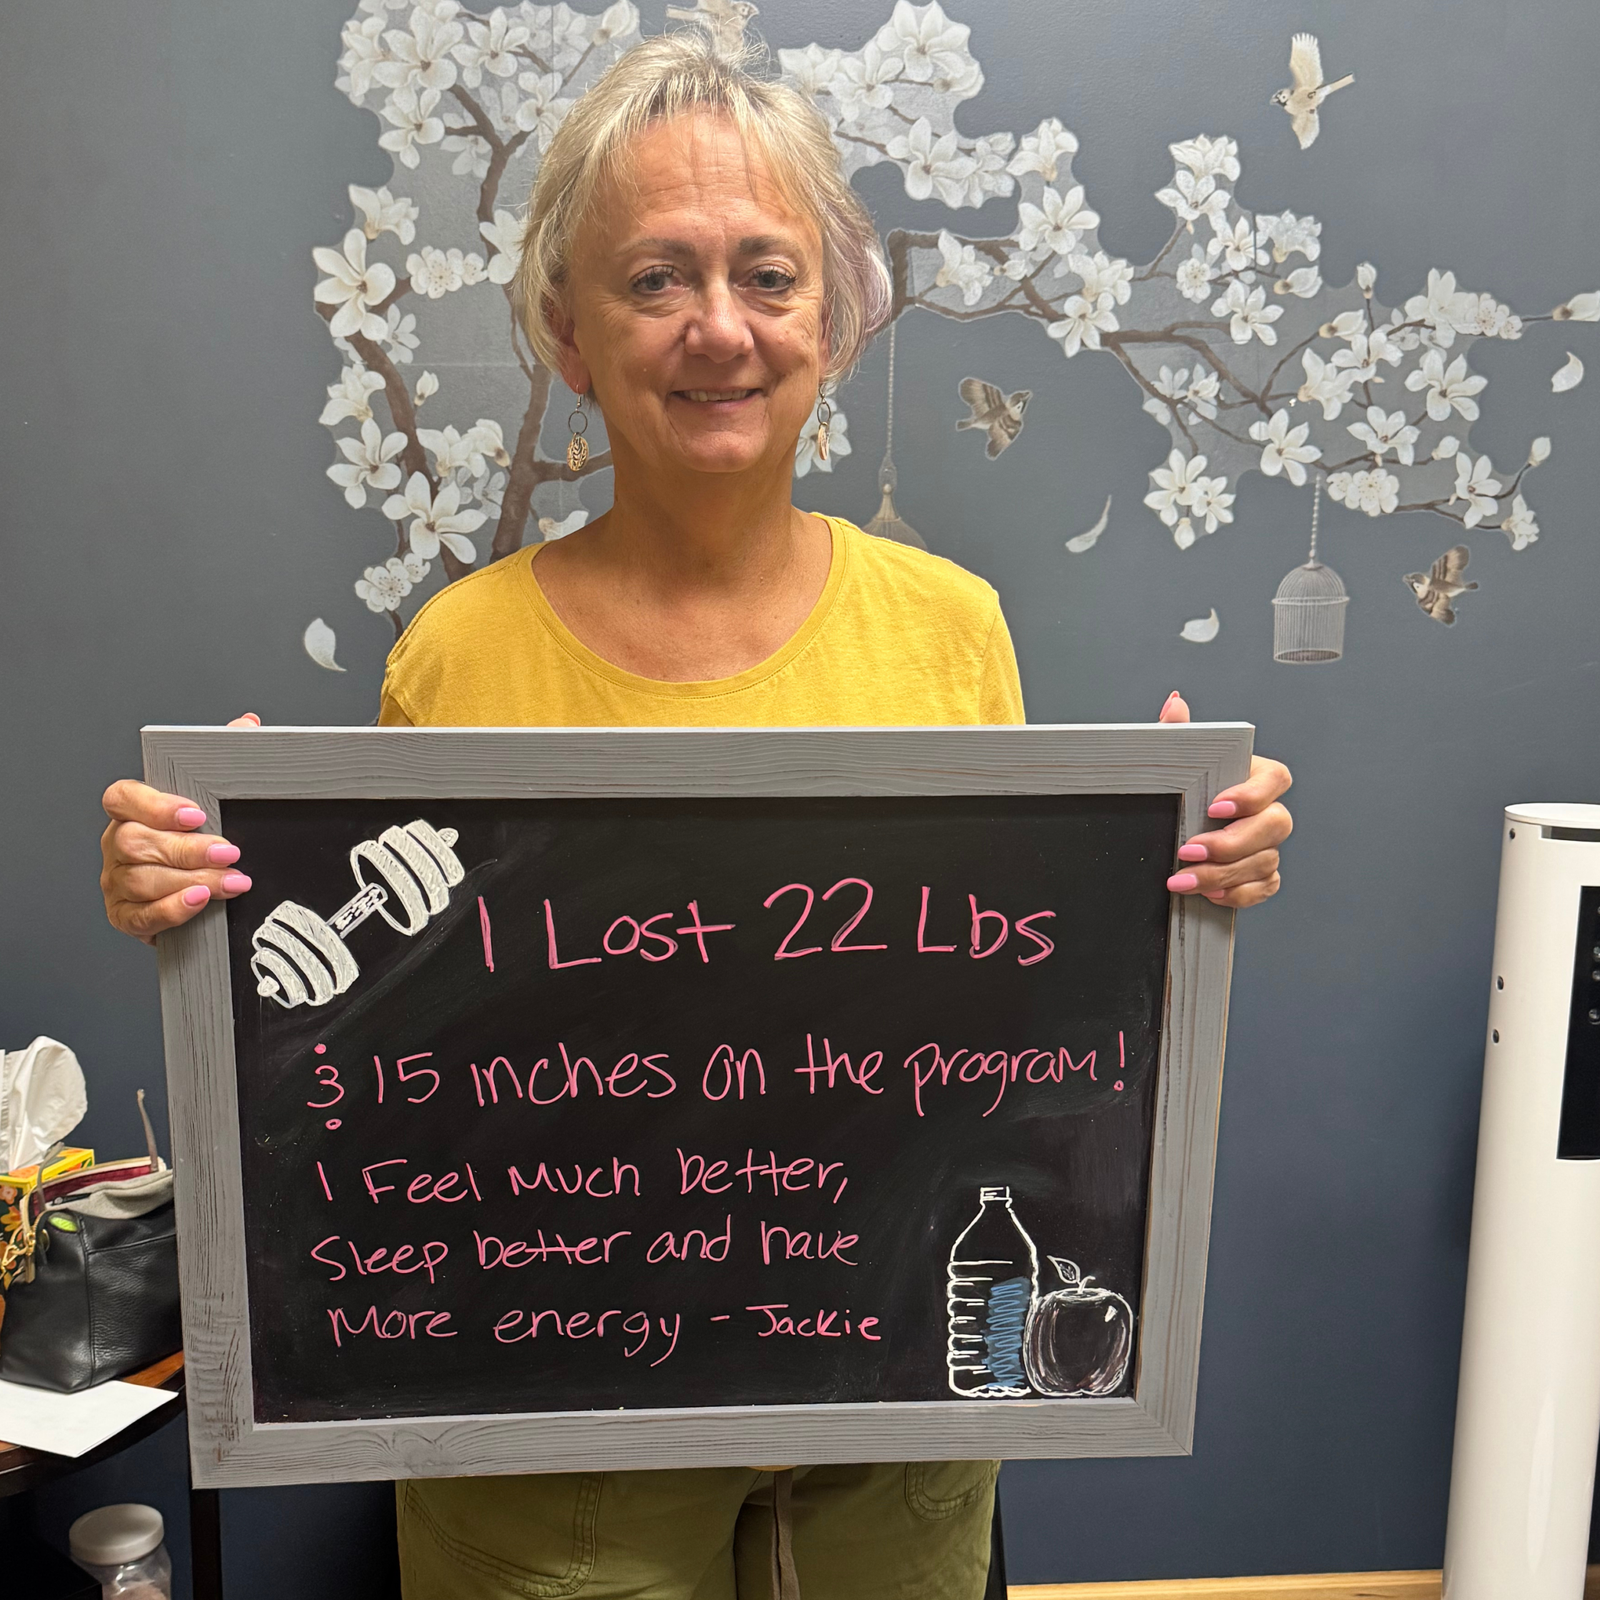 I Lost 22 Lbs
& 15 inches on the program!
I Feel Much better,
Sleep better and have
More energy - Jackie